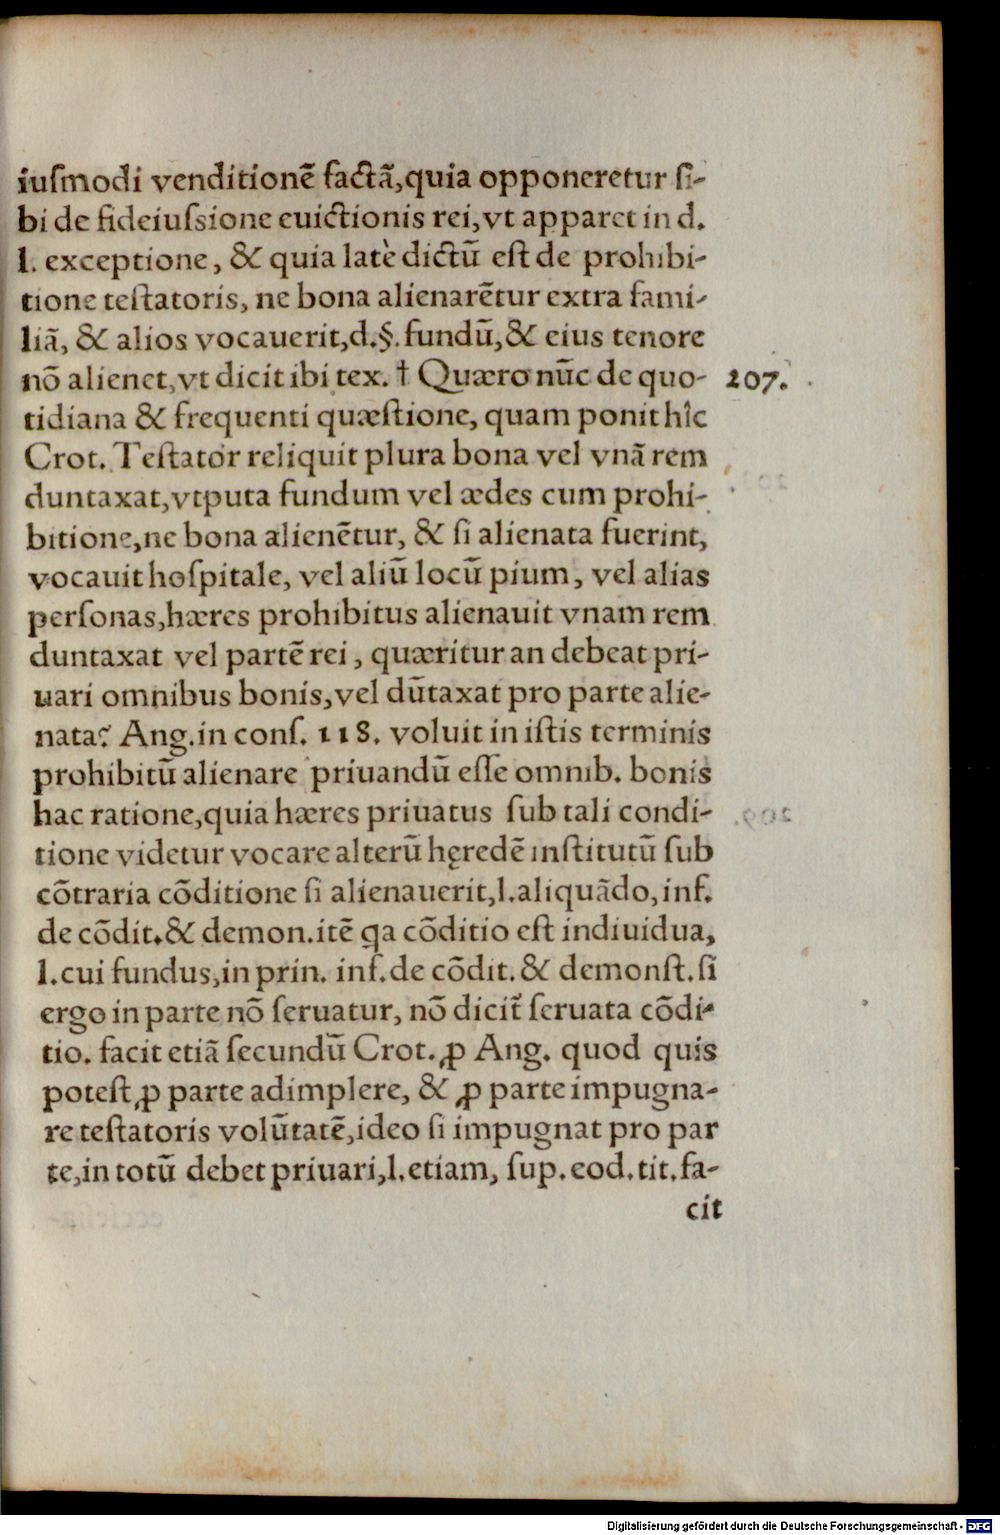 iuſmodi venditionẽ factã,quia opponeretur ſi-
bi de fideiuſsione euictionis rei,vt apparet in d.
l. exceptione, & quia latè dictũ eſt de prohibi-
tione teſtatoris, ne bona alienarẽtur extra fami-
liã, & alios vocauerit,d.§.fundũ,& eius tenore
nõ alienet,vt dicit ibi tex. † Quæro nũc de quo- 207.
tidiana & frequenti quæſtione, quam ponit hîc
Crot. Teſtator reliquit plura bona vel vnã rem
duntaxat,vtputa fundum vel ædes cum prohi-
bitione,ne bona alienẽtur, & ſi alienata fuerint,
vocauit hoſpitale, vel aliũ locũ pium, vel alias
perſonas,hæres prohibitus alienauit vnam rem
duntaxat vel partẽ rei, quæritur an debeat pri-
uari omnibus bonis,vel dũtaxat pro parte alie-
nata? Ang.in conſ. 118. voluit in iſtis terminis
prohibitũ alienare priuandũ eſſe omnib. bonis
hac ratione,quia hæres priuatus ſub tali condi-
tione videtur vocare alterũ hęredẽ inſtitutũ ſub
cõtraria cõditione ſi alienauerit,l.aliquãdo,inf.
de cõdit.& demon.itẽ qa cõditio eſt indiuidua,
l.cui fundus,in prin. inf.de cõdit.& demonſt.ſi
ergo in parte nõ ſeruatur, nõ dicit̃ ſeruata cõdi-
tio. facit etiã ſecundũ Crot. ꝓ Ang. quod quis
poteſt ꝓ parte adimplere, & ꝓ parte impugna-
re teſtatoris volũtatẽ,ideo ſi impugnat pro par
te,in totũ debet priuari,l.etiam, ſup.eod.tit.fa-
cit
Digitalisierung gefördert durch die Deutsche Forschungsgemeinschaft - DFG